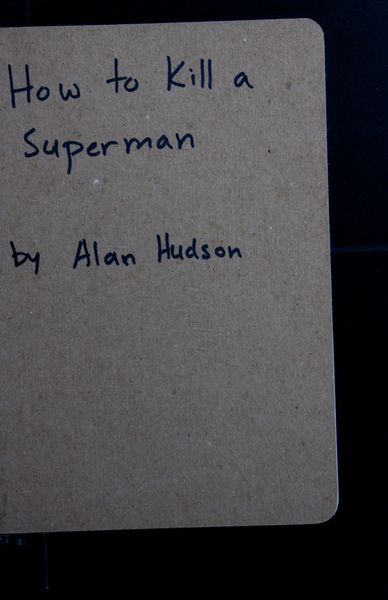 How to Kill a
Superman
by Alan Hudson